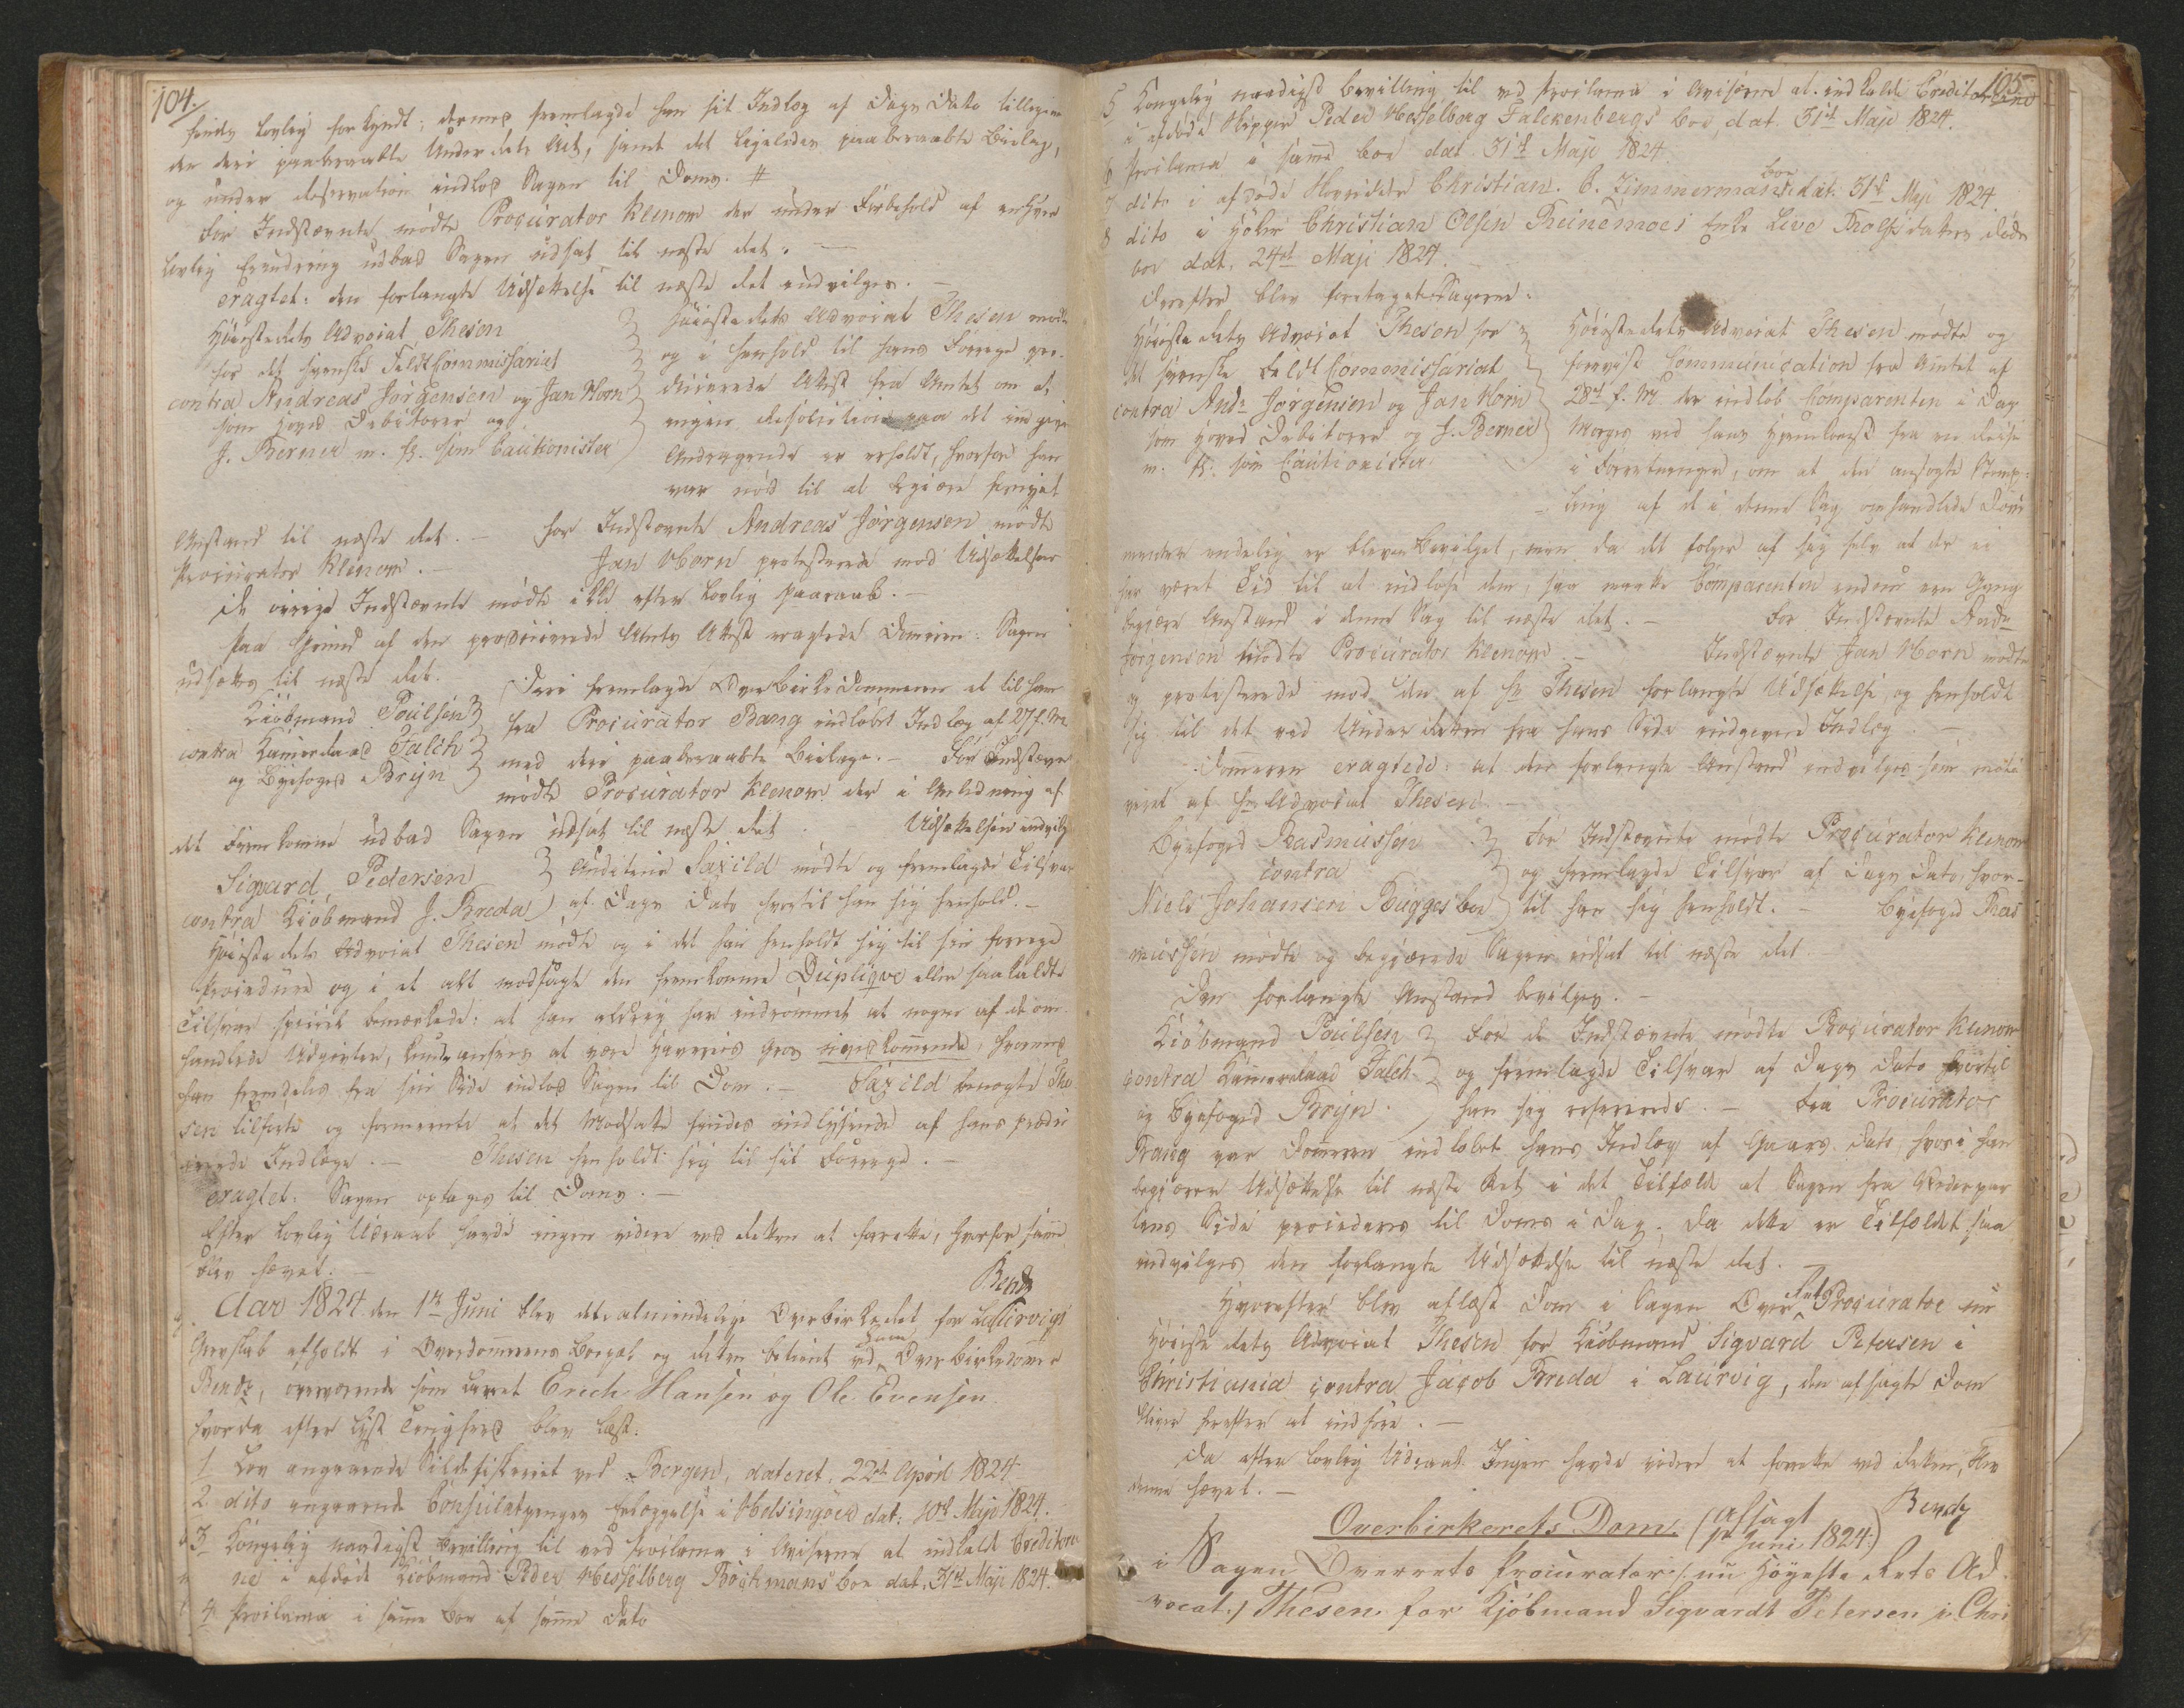 104.
lovlig forkyndt; dernæst fremlagde han sit Indlæg af Dags Dato tilligemed
den deri paaberaabte Underrets Act, samt det ligeledes paaberaabte Bielag,
og under Reservation indlod Sagen til Doms. #
For Indstævnte mødte Procurator Klenow der under Forbehold af enhver
lovlig Erindring udbad Sagen udsat til næste Ret. —
eragtet: den forlangte Udsættelse til næste Ret indvilges. —
Høiesterets Advocat Thesen
for det svenske Feldt Commissariat
contra Andreas Jørgensen og Jan Horn
som Hoved Debitorer og
J. Berner m. fl. som Cautionister
Høiesterets Advocat Thesen mødte
og i Henhold til hans Forrige pro-
ducerede Attest fra Amtet om at
ingen Resolution paa det indgivne
Andragende er erholdt, hvorfor han
var nød til at begiære fornyet
Anstand til næste Ret. — For Indstævnte Andreas Jørgensen mødte
Procurator Klenow. — Jan Horn protesterede mod Udsættelsen
De øvrige Indstævnte mødte ikke efter lovlig Paaraab. —
Paa Grund af den producerede Amts Attest eragtede Dommeren: Sagen
udsættes til næste Ret.
Kiøbmand Poulsen
contra Kammerraad Falch
og Byefoged Bryn
Deri fremlagde Overbirkedommeren et til ham
fra Procurator Bang indløbet Indlæg af 27 f. M.
med deri paaberaabte Bielage. — For Indstævnte
mødte Procurator Klenow der i Anledning af
det Fremkomne udbad Sagen udsat til næste Ret. Udsættelsen indvilg
Sigvard Pedersen
contra Kiøbmand J. Breda
Auditeur Saxild mødte og fremlagde Tilsvar
af Dags Dato hvortil han sig henholdt. —
Høiesterets Advocat Thesen mødte og i det han henholdt sig til sin forrige
Procedure og i et alt modsagt den fremkomne Duplique eller saakaldte
Tilsvar specielt bemærkede: at han aldrig har indrømmet at nogen af de om-
handlede Udgivter, kunde ansees at være Haveries Gros vedkommende, hvormed
han fremdeles fra sin Side indlod Sagen til Dom. — Saxild benegte The
sen tilførte og formeente at det Modsatte findes indlysende af hans produ
cerede Indlæge. — Thesen henholdt sig til sit Forrige. —
eragtet: Sagen optages til Doms. —
Efter lovlig Udraab havde ingen videre ved Retten at forrette, hvorfor samme
blev hævet. —
Bendz
Aar 1824 den 1te Juni blev det almindelige Overbirkeret for Laurvigs
Grevskab afholdt i Overdommerens Bopæl og Retten betient ved Overbirkedommer
Bendz, overværende som Laurret Erich Hansen og Ole Evensen.
hvorda efter lyst Tinghred blev læst:
1 Lov angaaende Sildefiskeriet ved Bergen, dateret 22d April 1824
2 dito angaaende Consulatpenges Erlæggelse i Helsingøer dat: 10d Maji 1824.
3 Kongelig naadigst Bevilling til ved Proclama i Aviserne at indkalde Creditorer-
ne i afdøde Kiøbmand Peder Hesselberg Bochmans Boe dat. 31d Maji 1824.
4 Proclama i samme Boe af samme Dato
105
5 Kongelig naadigst Bevilling til ved Proclama i Aviserne at indkalde Creditorerne
i afdøde Skipper Peder Hesselberg Falckenbergs Boe, dat. 31d Maji 1824.
6 Proclama i samme Boe dat. 31d Maji 1824.
7 dito i afdøde Christian C. Zimmermans Boe dat. 31d Maji 1824
8 dito i Christian Olsen Enke Live Døds
boe dat. 24d Maji 1824.
Derefter blev foretaget Sagerne:
Høieste Rets Advocat Thesen for
det svenske Feldt Commissariat
contra Ands Jørgensen og Jan Horn
som Hoved Debitorer og J. Berner
m. fl. som Cautionister
Høiesterets Advocat Thesen mødte og
foreviste Communication fra Amtet af
28d f. M. der indløb Comparenten i Dag
Morges ved hans Hjemkomst fra en Reise
i Forretninger, om at den ansøgte Stemp-
ling af de i denne Sag omhandlede Docu
menter endelig er bleven Bevilget, men da det følger af sig selv at der ei
har været Tid til at indløse dem, saa maatte Comparenten endnu een Gang
begiære Anstand i denne Sag til næste Ret. — For Indstævnte Ands
Jørgensen mødte Procurator Klenow. — Indstævnte Jan Horn mødte
og protesterede mod den af Hr Thesen forlangte Udsættelse, og henholdt
sig til det ved Underretten fra hans Side indgivne Indlæg. —
Dommeren eragtede: at den forlangte Anstand indvilges som moti
veret af Hr Advocat Thesen. —
Byefoged Rasmussen
contra
Niels Johansen Bugges Boe
For Indstævnte mødte Procurator Klenow
og fremlagde Tilsvar af Dags Dato, hvor-
til han sig henholdt. — Byefoged Ras
mussen mødte og begiærede Sagen udsat til næste Ret.
Den forlangte Anstand bevilges. —
Kiøbmand Poulsen
contra Kammerraad Falch
og Byefoged Bryn.
For de Indstævnte mødte Procurator Klenow
og fremlagde Tilsvar af Dags Dato hvortil
han sig refererede. — Fra Procurator
Bang var Dommeren indløbet hans Indlæg af Gaars Dato, hvori han
begiærer Udsættelse til næste Ret, i det Tilfælde at Sagen fra Vederpar
tens Side procederes til Doms i Dag. Da dette er Tilfældet saa
indvilges den forlangte Udsættelse til næste Ret. —
Hvorefter blev aflæst Dom i Sagen Over Ret Procurator nu
Høieste Rets Advocat Thesen for Kiøbmand Sigvard Petersen i
Christiania contra Jacob Breda i Laurvig, den afsagte Dom
bliver herefter at indføre. —
Da efter lovlig Udraab Ingen havde videre at forrette ved Retten, blev
denne hævet. —
Bendz
Overbirkerets Dom. (afsagt
1te Juni 1824.)
i Sagen Overrets Procurator /: nu Høyeste Rets Ad-
vocat :/ Thesen for Kjøbmand Sigvardt Petersen i Chri